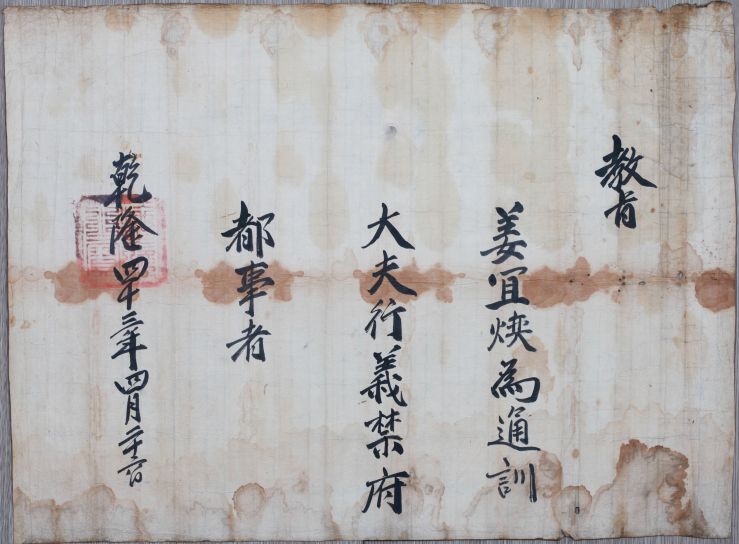 教旨
姜宜為通訓
大夫行義禁府
都事者
乾隆四十三年四月二十日